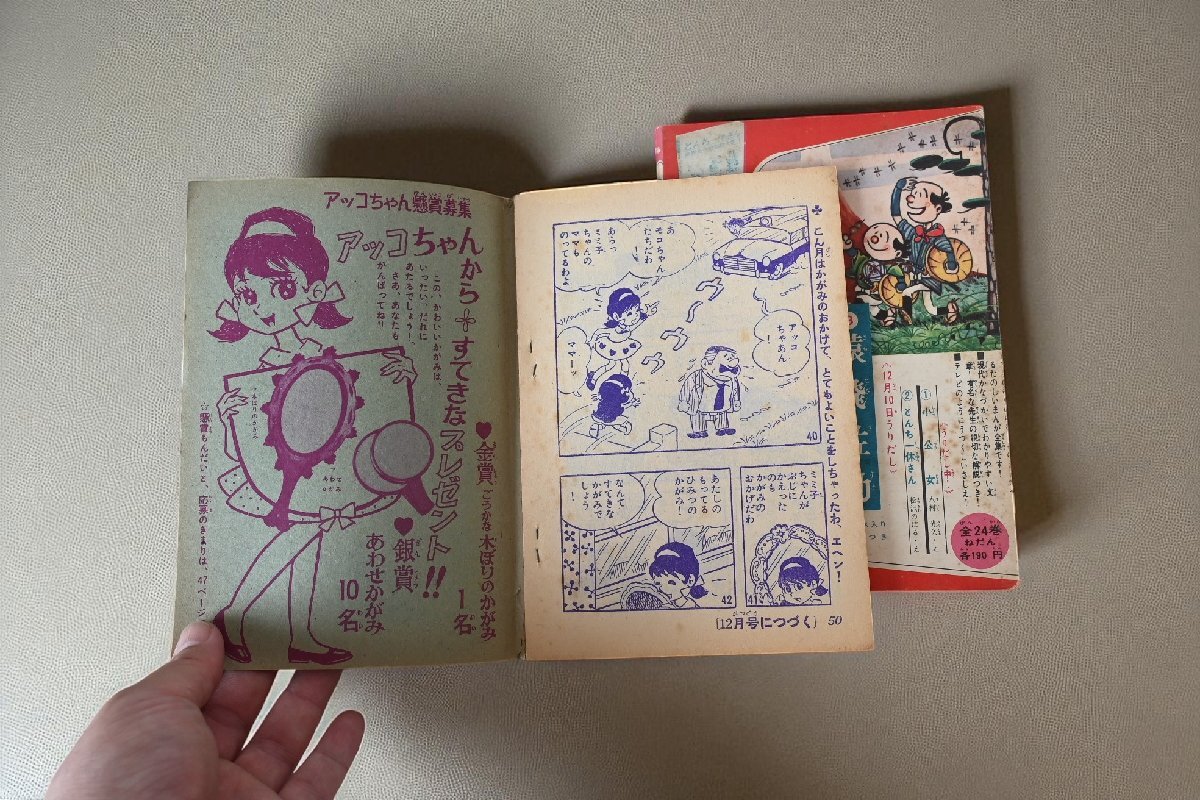 アッコちゃん懸賞募集
アッコちゃん
から＋すてきな
プレゼント!!
この、かわいいかがみは、
いったい、だれに
あたるでしょう！
さあ、あなたも
がんばってね！
♥金賞 ごうかな木ぼりのかがみ
1名
♥銀賞
あわせかがみ
10名
木ぼりのかがみ
あわせ
かがみ
☆懸賞もんだいと、応募のきまりは、47ページ
♣こん月はかがみのおかげで、とてもよいことをしちゃったわ、エヘン！
あ
モコちゃん
たちだわ
あらっ
ミミ子
ちゃんの
ママも
のってるわよ
アッコ
ちゃあん！
ママーッ
40
ミミ子
ちゃんが
ぶじに
かえった
のも
かがみの
おかげだわ
41
あたしの
もってる
ひみつの
かがみ！
なんて
すてきな
かがみで
しょう
！
42
(12月号につづく) 50
■テレビのようにうつくしいさしえ！
①小公女
②とんち一休さん
〈12月10日うりだし〉
全24巻
ねだん
各190円